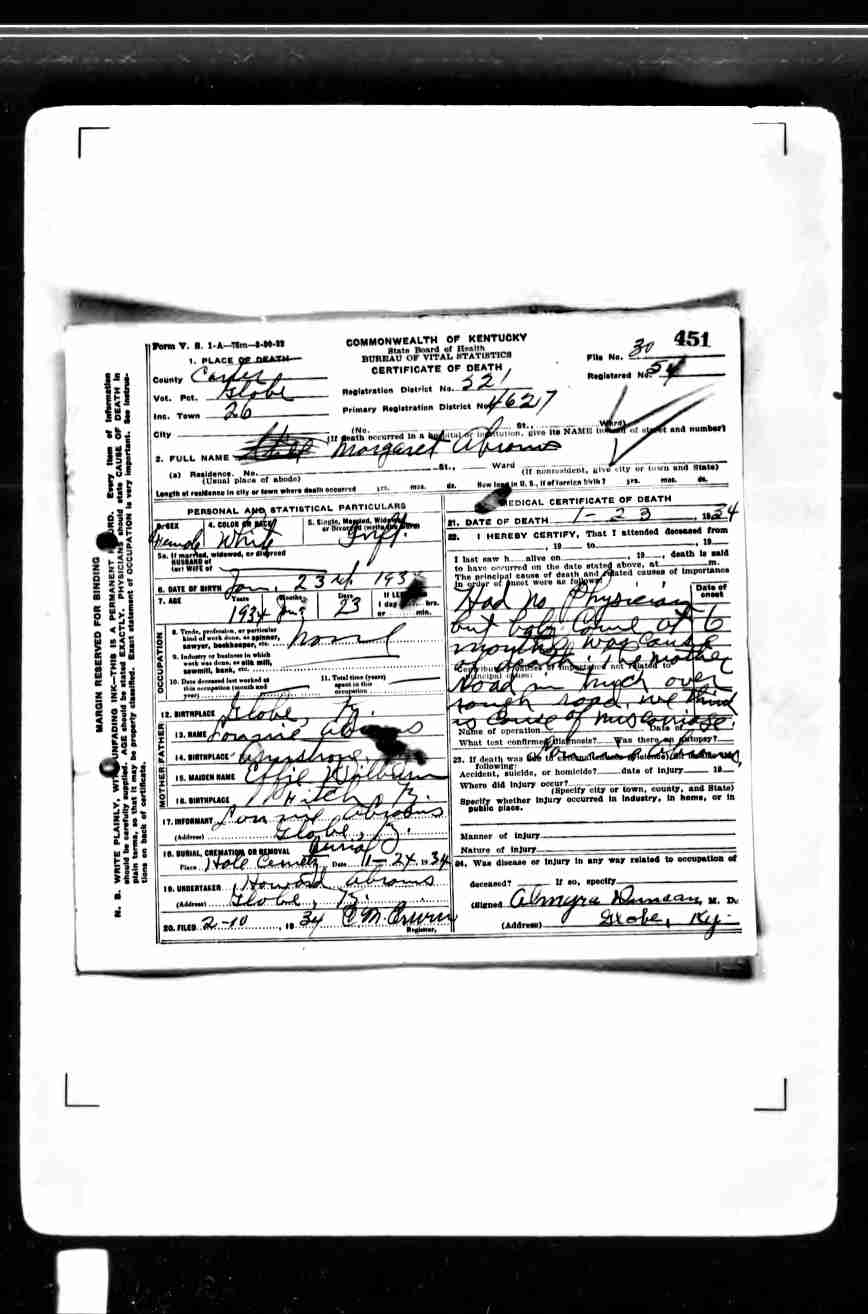 Form V. S. 1-A—75m—3-20-33
COMMONWEALTH OF KENTUCKY
State Board of Health
BUREAU OF VITAL STATISTICS
CERTIFICATE OF DEATH
File No. 30 451
Registered No. 54
1. PLACE OF DEATH
County Carter
Vot. Pct. Globe
Inc. Town 26
City
Registration District No. 321
Primary Registration District No. 4627
(No. St., Ward)
(If death occurred in a hospital or institution, give its NAME instead of street and number)
2. FULL NAME Margaret Abrams
(a) Residence. No. St., Ward
(Usual place of abode) (If nonresident, give city or town and State)
Length of residence in city or town where death occurred yrs. mos. ds. How long in U. S., if of foreign birth? yrs. mos. ds.
PERSONAL AND STATISTICAL PARTICULARS
3. SEX Female
4. COLOR OR RACE White
5. Single, Married, Widowed, or Divorced (write the word)
5a. If married, widowed, or divorced
HUSBAND of
(or) WIFE of
6. DATE OF BIRTH Jan. 23 1934
7. AGE Years Months Days If LESS than
1934 23 1 day hrs.
or min.
OCCUPATION
8. Trade, profession, or particular
kind of work done, as spinner,
sawyer, bookkeeper, etc. none
9. Industry or business in which
work was done, as silk mill,
sawmill, bank, etc.
10. Date deceased last worked at
this occupation (month and
year)
11. Total time (years)
spent in this
occupation
12. BIRTHPLACE Globe, Ky.
FATHER
13. NAME Lonnie Abrams
14. BIRTHPLACE
MOTHER
15. MAIDEN NAME Effie Wilburn
16. BIRTHPLACE Hitch, Ky.
17. INFORMANT Lonnie Abrams
(Address) Globe, Ky.
18. BURIAL, CREMATION OR REMOVAL Burial
Place Hole Cemety Date 1-24 1934
19. UNDERTAKER Howard Abrams
(Address) Globe, Ky.
20. FILED 2-10, 1934 Registrar,
MEDICAL CERTIFICATE OF DEATH
21. DATE OF DEATH 1-23 1934
22. I HEREBY CERTIFY, That I attended deceased from
, 19 to , 19
I last saw h alive on , 19 , death is said
to have occurred on the date stated above, at m.
The principal cause of death and related causes of importance
in order of onset were as follows:
Date of onset
Had no Physician
but baby Come at 6
months was Cause
of death. The mother
Road in truck over
rough road. we think
is Cause of miscarriage.
Contributory causes of importance not related to
principal cause:
Name of operation Date of
What test confirmed diagnosis? Was there an autopsy?
23. If death was due to external causes (violence) fill in the
following:
Accident, suicide, or homicide? date of injury 19
Where did injury occur?
(Specify city or town, county, and State)
Specify whether injury occurred in industry, in home, or in
public place.
Manner of injury
Nature of injury
24. Was disease or injury in any way related to occupation of
deceased? If so, specify
(Signed Almyra Duncan, M. D.
(Address) Globe, Ky.
MARGIN RESERVED FOR BINDING
N. B. WRITE PLAINLY, WITH UNFADING INK—THIS IS A PERMANENT RECORD. Every item of information
should be carefully supplied. AGE should be stated EXACTLY. PHYSICIANS should state CAUSE OF DEATH in
plain terms, so that it may be properly classified. Exact statement of OCCUPATION is very important. See instruc-
tions on back of certificate.